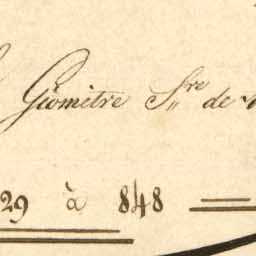 Géometre S.re de
29 à 848